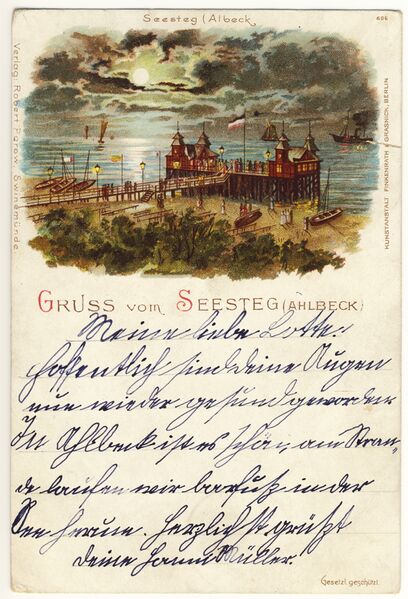 Seesteg (Albeck
686
Verlag Robert Parow, Swinemünde.
KUNSTANSTALT FINKENRATH & GRASNICK, BERLIN
GRUSS vom SEESTEG (AHLBECK)
Meine liebe Lotte.
Hoffentlich sind deine Augen
nun wieder gesund geworden.
In Ahlbeck ist es schön, am Stran-
de laufen wir barfuß in der
See herum. Herzlichst grüßt
deine Hanni Müller.
Gesetzl. geschützt.